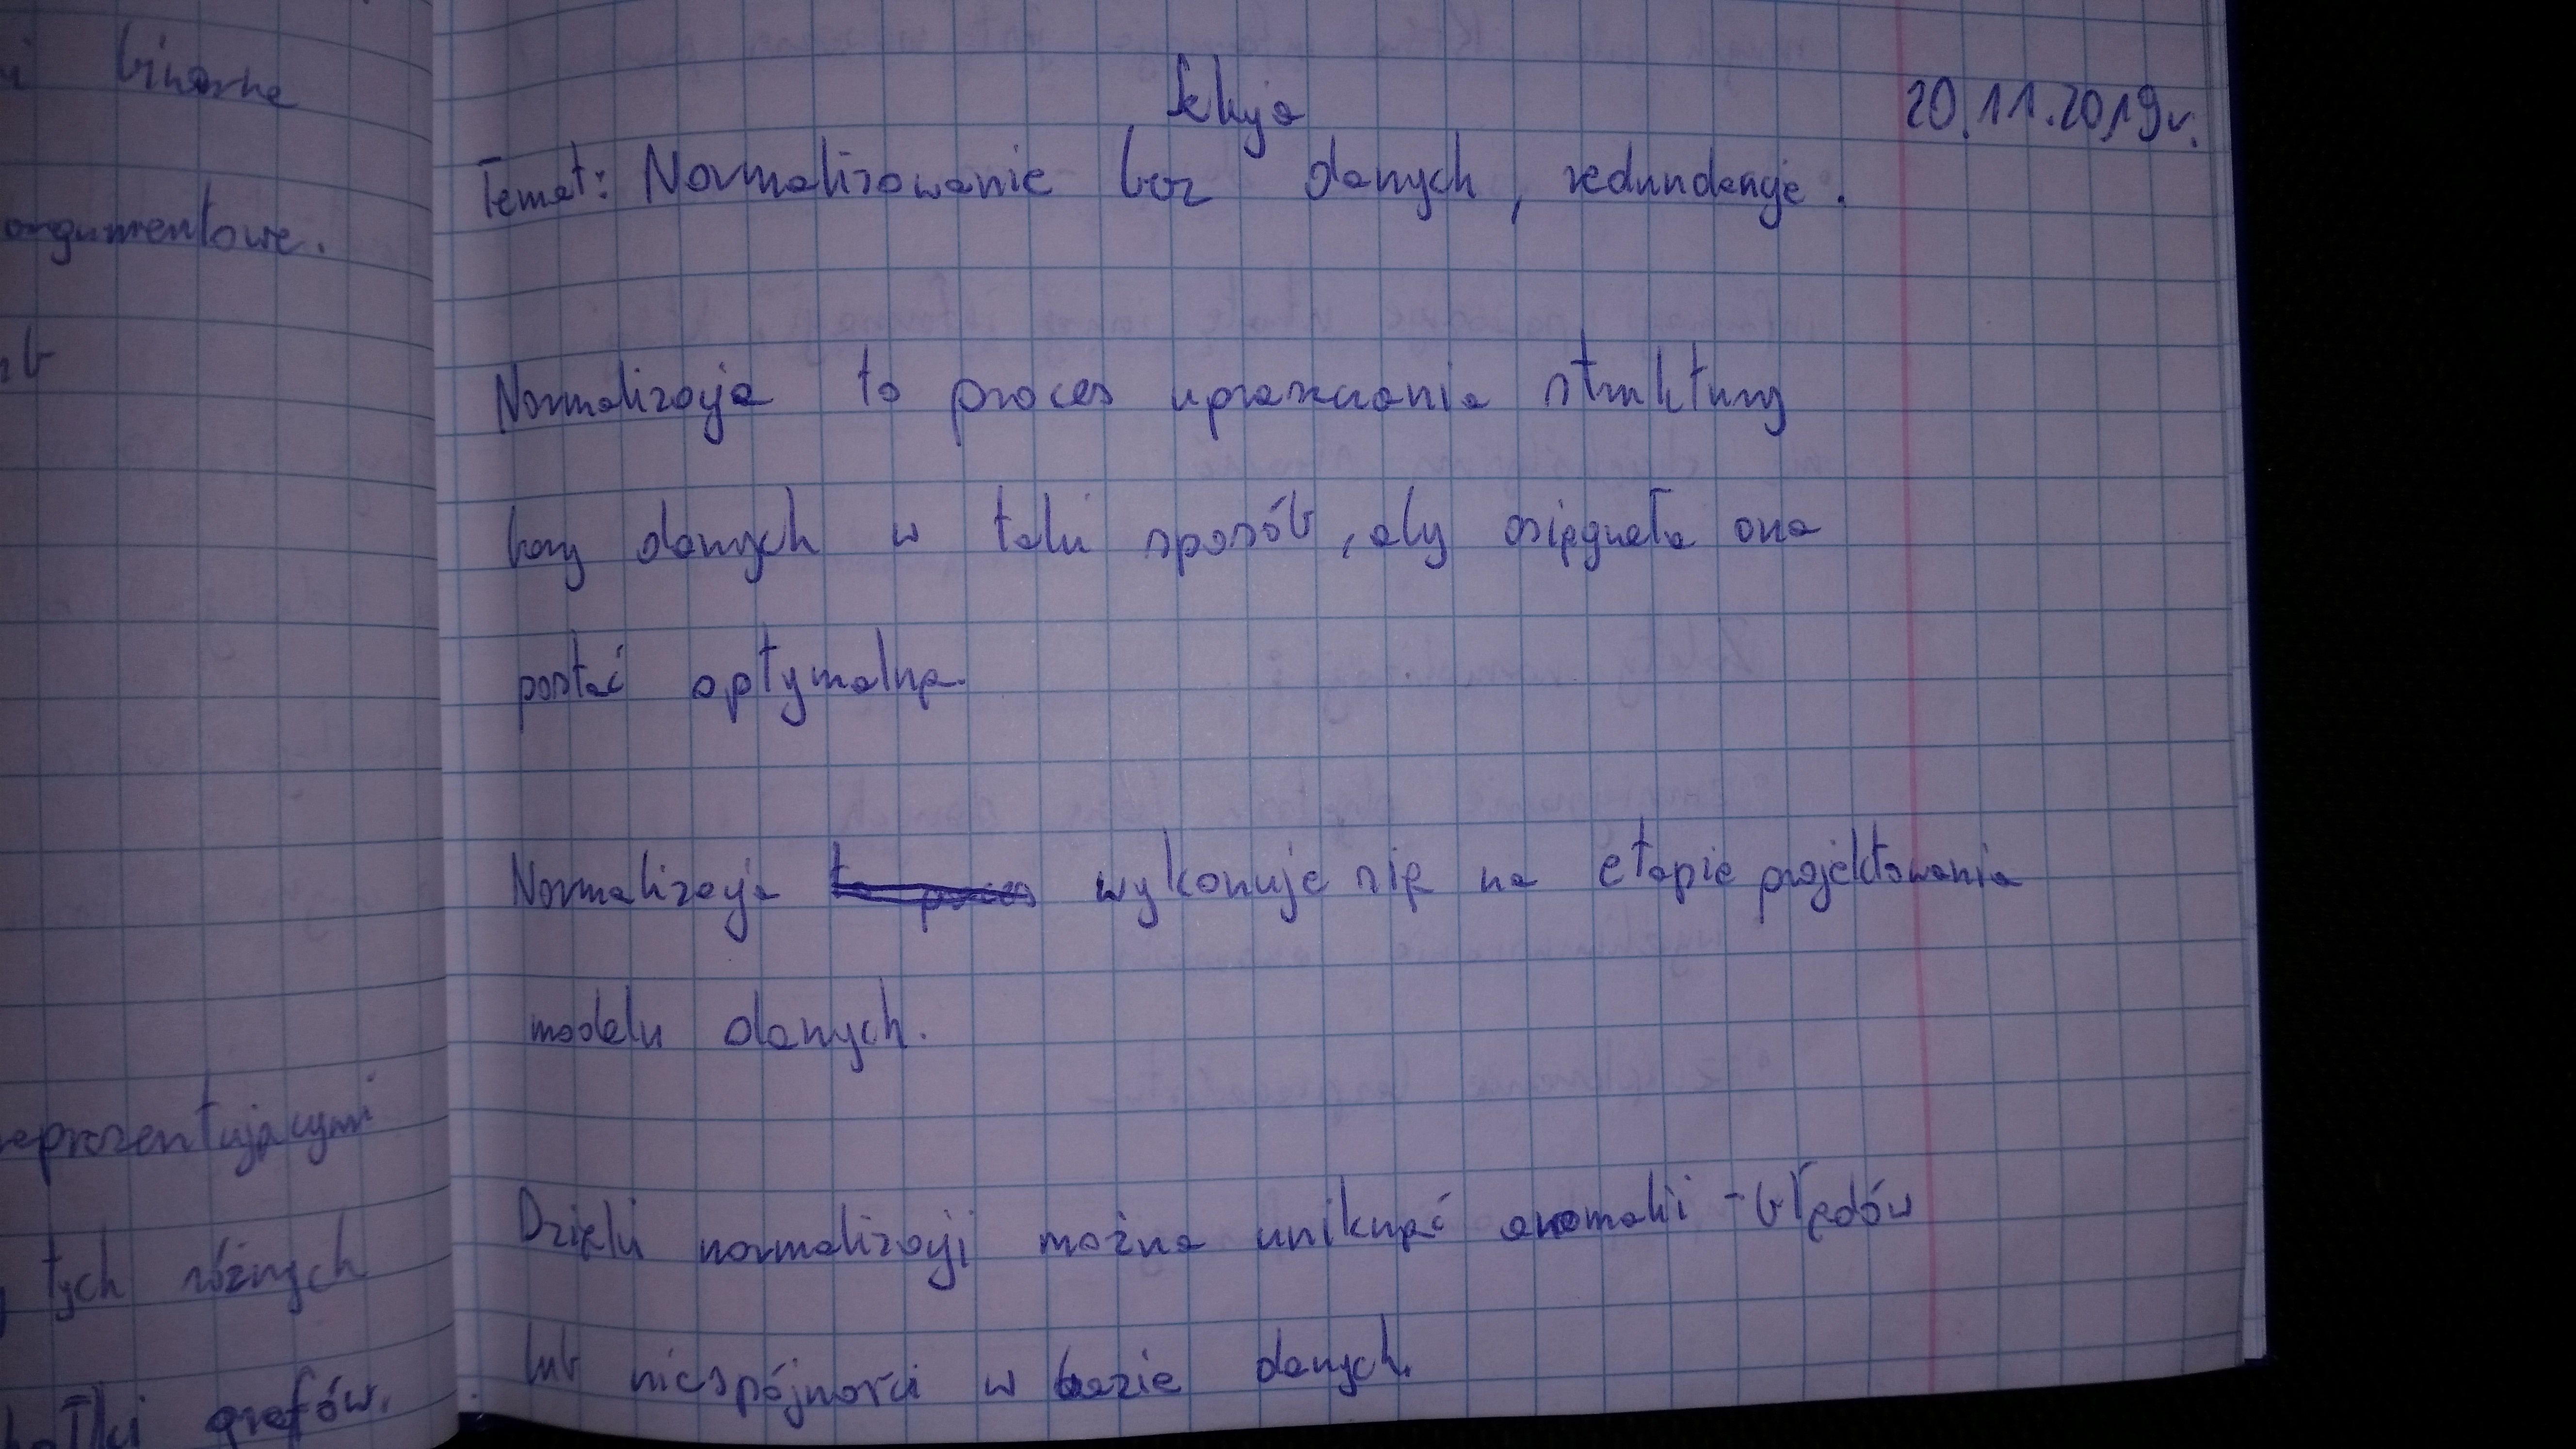 i binarne
argumentowe.
reprezentującymi
tych różnych
grafów.
Lekcja
20.11.2019r.
Temat: Normalizowanie baz danych, redundancje.
Normalizacja to proces upraszczania struktury
bazy danych w taki sposób, aby osiągnęła ona
postać optymalną.
Normalizacja to proces wykonuje się na etapie projektowania
modelu danych.
Dzięki normalizacji można uniknąć anomalii - błędów
lub niespójności w bazie danych.